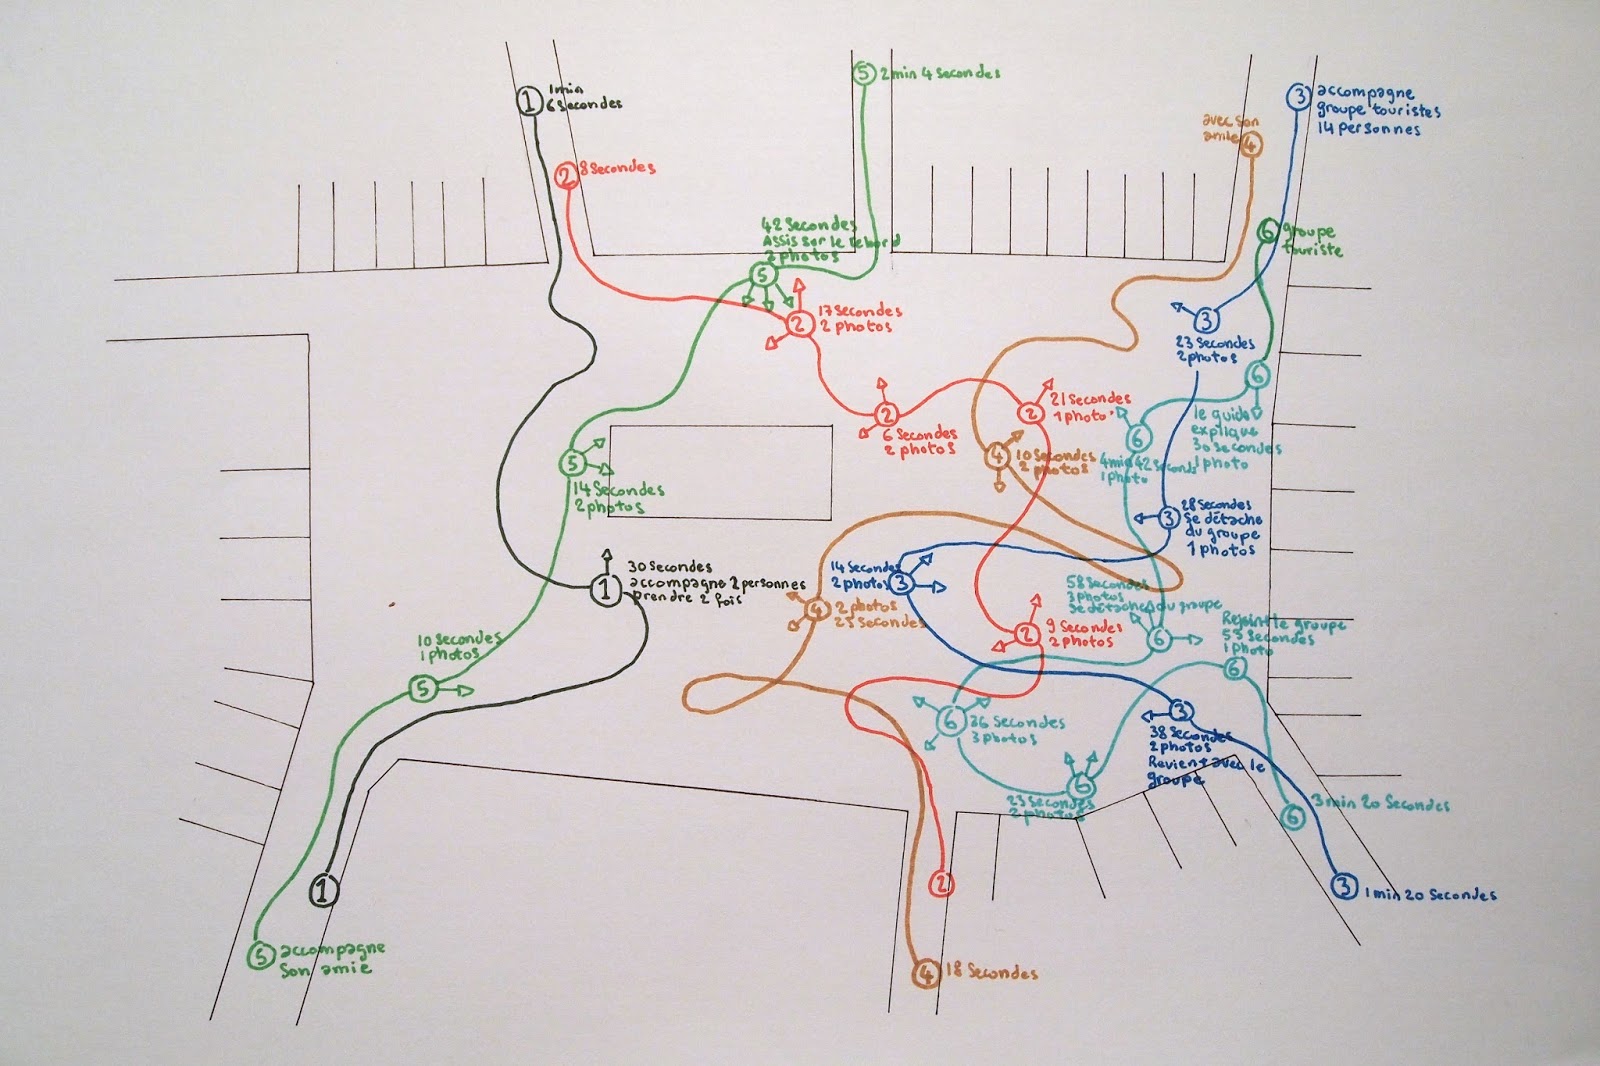 1
1min
6 Secondes
2
8 Secondes
5
2 min 4 secondes
avec son
amie
4
3
accompagne
groupe touristes
14 personnes
6
groupe
touriste
42 Secondes
Assis sur le rebord
2 photos
5
2
17 Secondes
2 photos
3
23 Secondes
2 photos
6
le guide
explique
30 Secondes
1 photo
2
6 Secondes
2 photos
2
21 Secondes
1 photo
4
10 Secondes
2 photos
6
4 min 42 Seconds
1 photo
5
14 Secondes
2 photos
3
28 Secondes
Se détache
du groupe
1 photos
1
30 Secondes
accompagne 2 personnes
Prendre 2 fois
14 Secondes
2 photos
3
4
2 photos
25 Secondes
58 Secondes
3 photos
Se détache du groupe
6
2
9 Secondes
2 photos
Rejoint le groupe
53 Secondes
1 photo
6
10 Secondes
1 photos
5
6
36 Secondes
3 photos
3
38 Secondes
2 photos
Revient avec le
groupe
6
23 Secondes
2 photos
3 min 20 Secondes
6
1
2
3
1 min 20 Secondes
5
accompagne
Son amie
4
18 Secondes